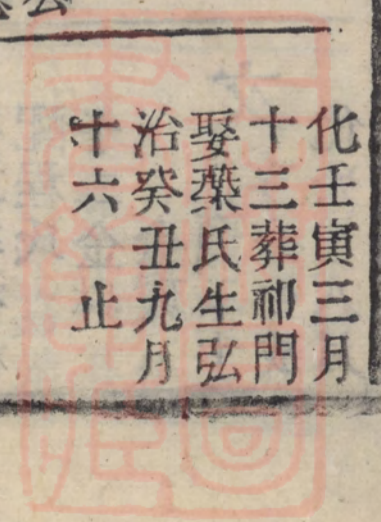 化壬寅三月
十三葬祁門
娶葉氏生弘
治癸丑九月
十六 止